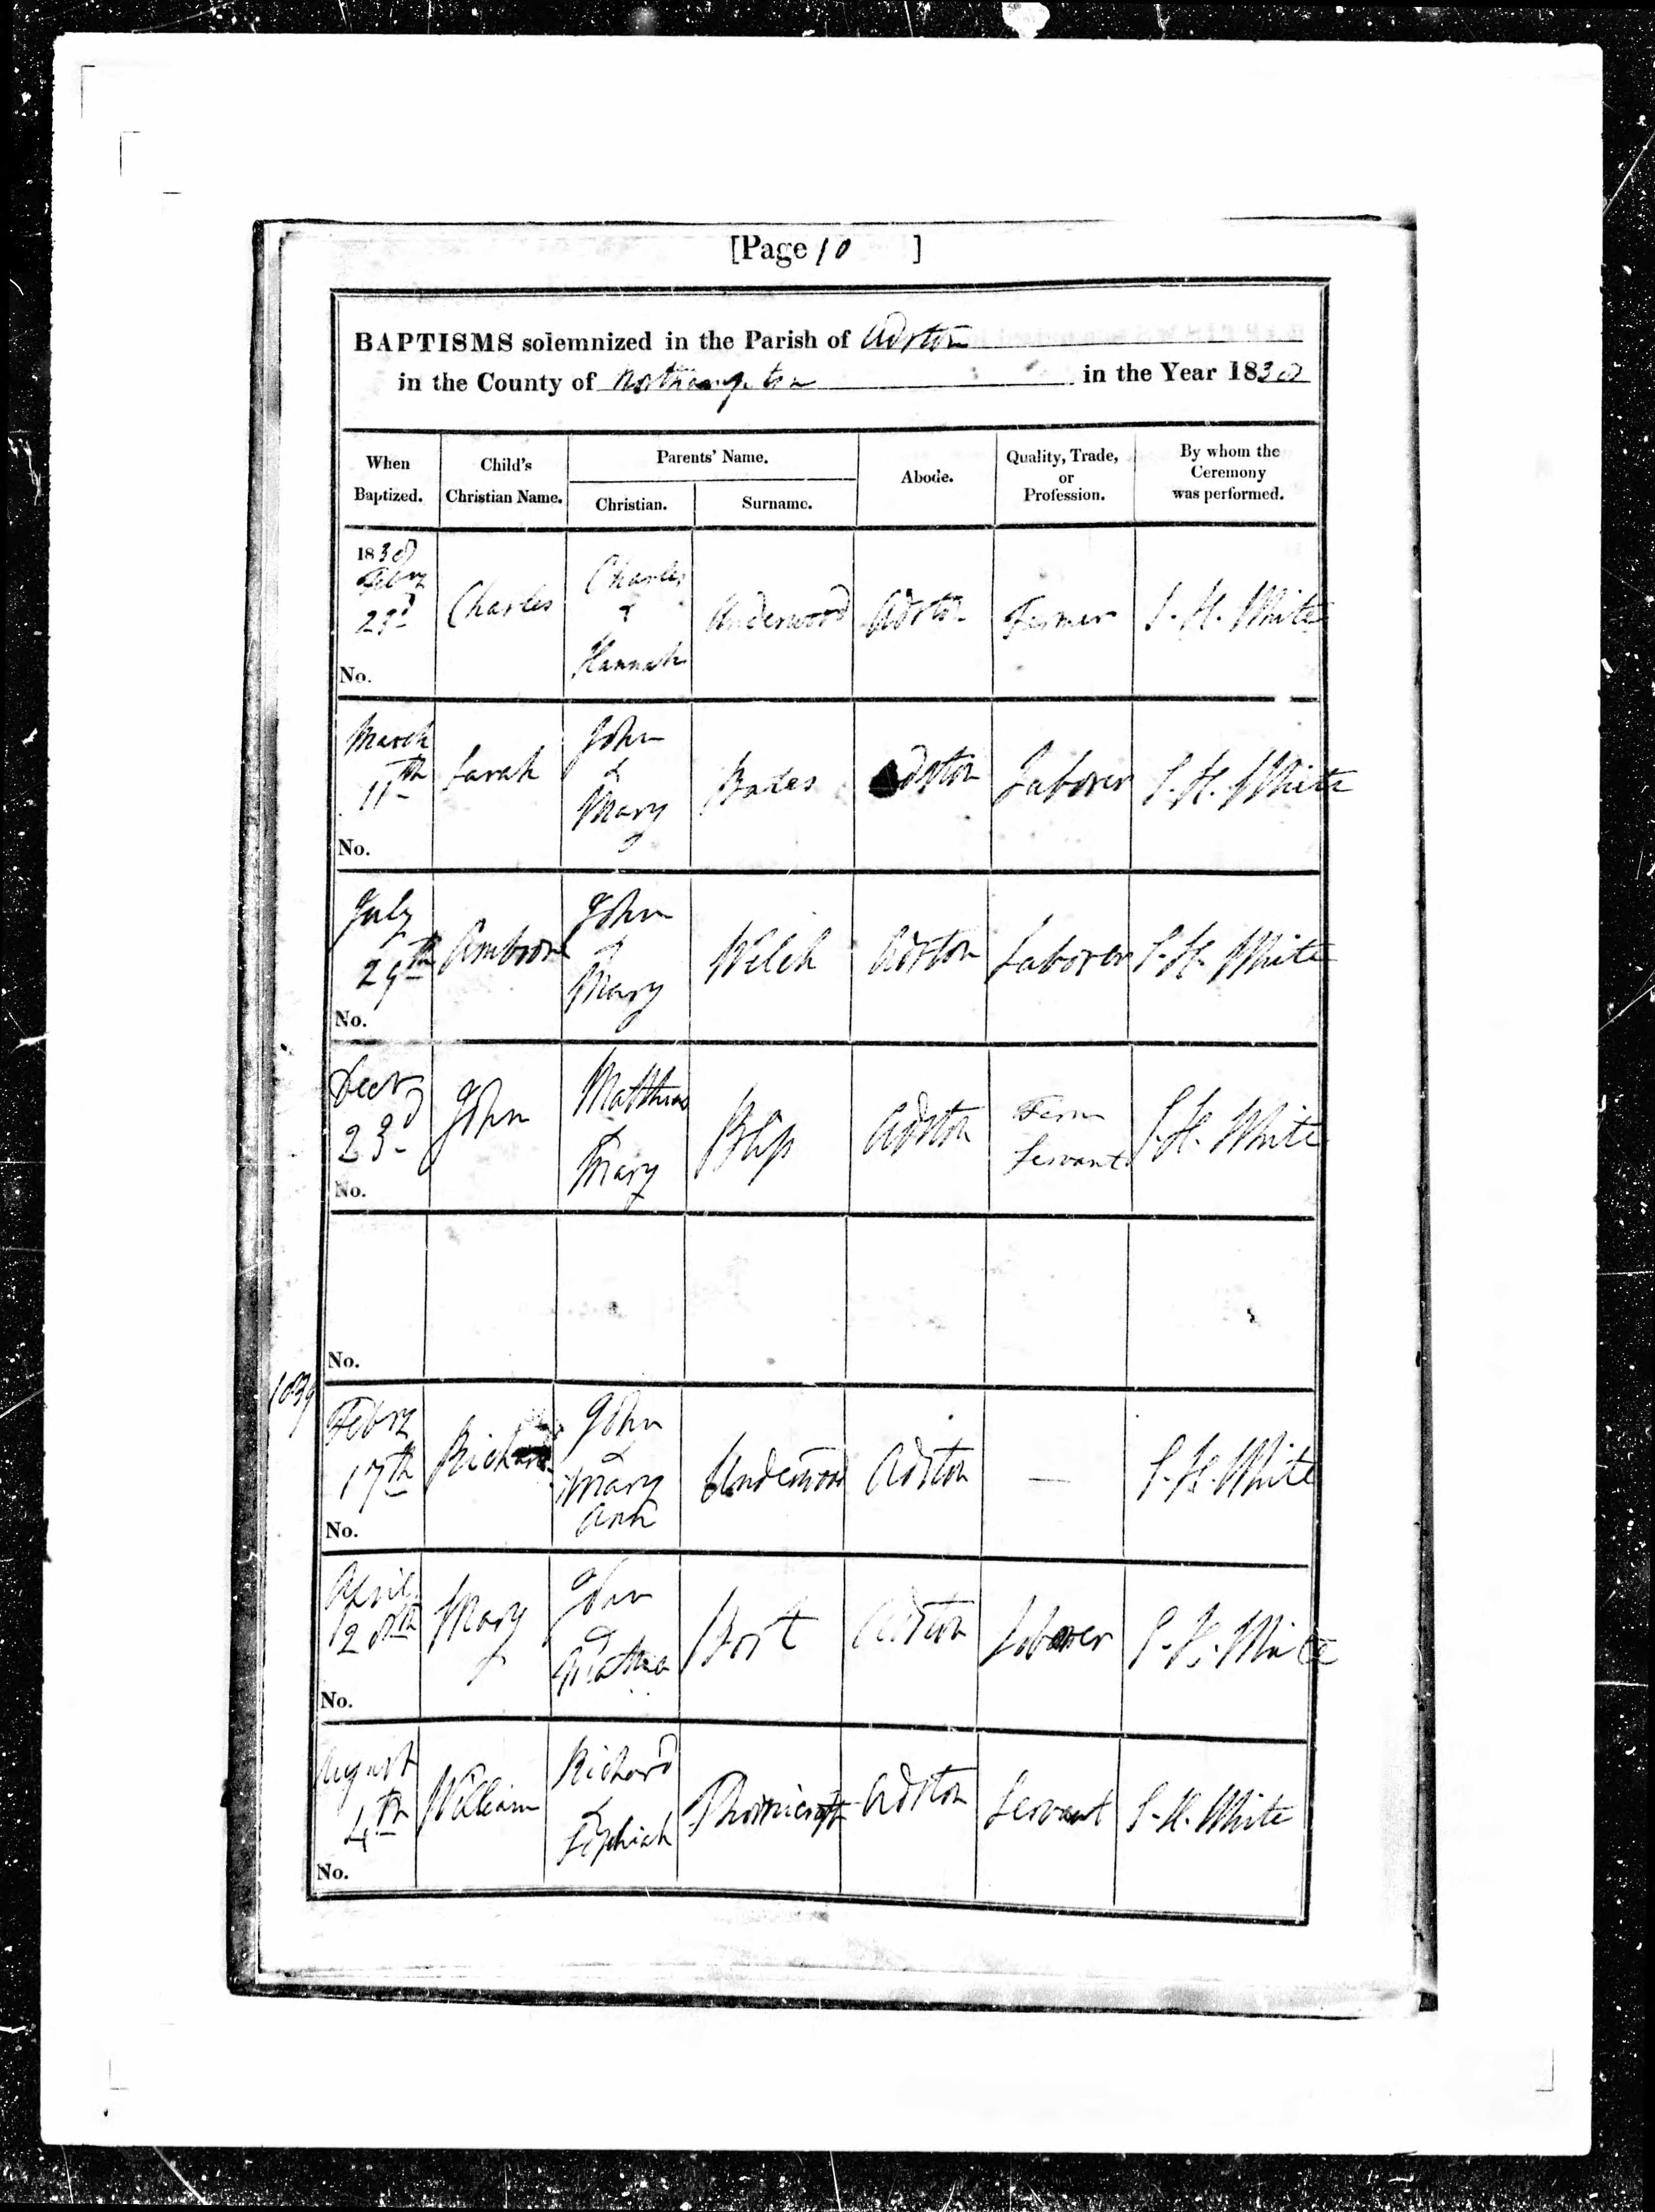 [Page 10 ]
BAPTISMS solemnized in the Parish of Adston
in the County of Northampton in the Year 1838
When Baptized. Child's Christian Name. Parents' Name. Christian. Surname. Abode. Quality, Trade, or Profession. By whom the Ceremony was performed.
1838
Febry Charles
23d Charles & Underwood Adston Farmer S. H. White
Hannah
No.
March John
11th Sarah & Bates Adston Laborer S. H. White
Mary
No.
July John
29th Ambrose & Welch Adston Laborer S. H. White
Mary
No.
Decr Matthias Farm
23d John & Bliss Adston Servant S. H. White
Mary
No.
No.
1839
Febry John
17th Richard & Underwood Adston — S. H. White
Mary
Ann
No.
April John
20th Mary & Adston Laborer S. H. White
No.
August Richard
4th William & Adston Servant S. H. White
Sophiah
No.